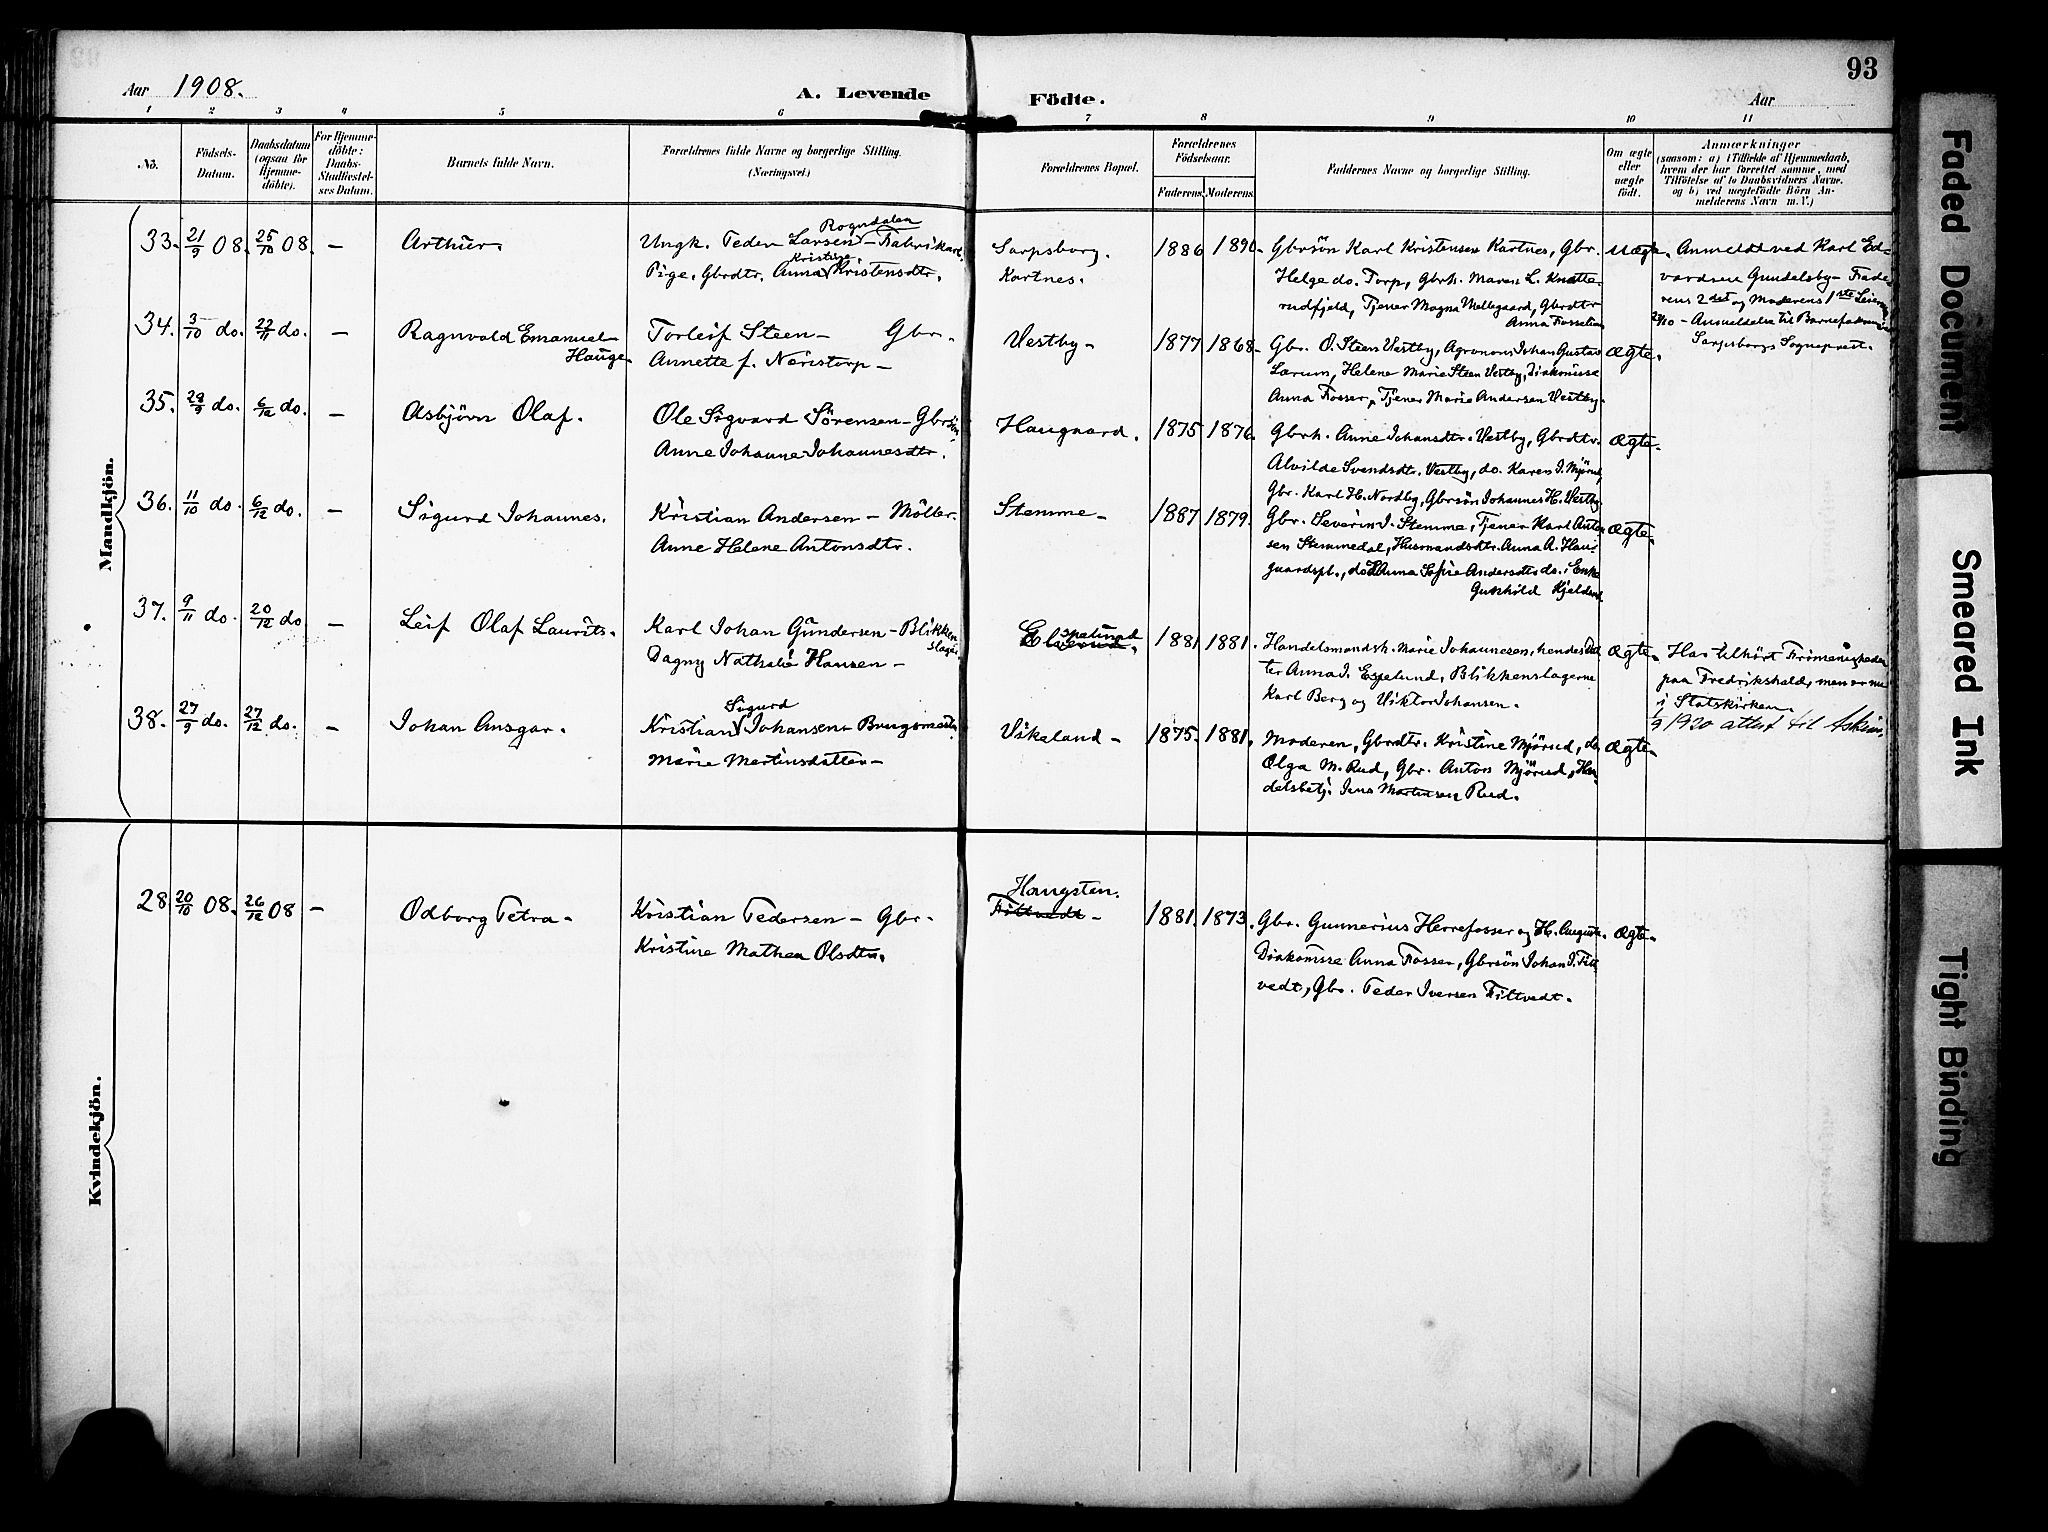 93
Aar 1908.
A. Levende Födte.
Aar
1 2 3 4 5 6 7 8 9 10 11
No.
Födsels-
Datum.
Daabsdatum
(ogsaa för
Hjemme-
döbte).
For Hjemme-
döbte:
Daabs-
Stadfæstel-
ses Datum.
Barnets fulde Navn.
Forældrenes fulde Navne og borgerlige Stilling.
(Næringsvei.)
Forældrenes Bopæl.
Forældrenes
Födselsaar.
Faderens. Moderens.
Faddernes Navne og borgerlige Stilling.
Om ægte
eller
uægte
födt.
Anmærkninger
(saasom: a) i Tilfælde af Hjemmedaab,
hvem der har forrettet samme, med
Tilföielse af to Daabsvidners Navne,
og b) ved uægtefödte Börn An-
melderens Navn m. V.)
Mandkjön.
33. 21/9 08. 25/10 08. – Arthur.
Rogndalen
Ungk. Peder Larsen – Fabrikarb.
Kristine
Pige, Gbrdtr. Anna Kristensdtr.
Sarpsborg.
Kartnes.
1886 1890.
Gbrsön Karl Kristensen Kartnes, Gbr.
Helge do. Torp, Gbrk. Maren L. Knatte-
rudfjeld, Tjener Magna Mellegaard, Gbrdtr
Anna
Uægte.
Anmeldt ved Karl Ed-
vardsen Gundelsby – Fade-
rens 2det og Moderens 1ste
– Anmeldelse til
Sarpsborgs Sognepræst.
34. 3/10 do. 22/11 do. – Ragnvald Emanuel
Hauge
Torleif Steen – Gbr.
Annette f. Nöristorp –
Vestby –
1877 1868.
Gbr. O. Steen Vestby, Agronom Johan Gustav
Lærum, Helene Marie Steen Vestby, Diakonisse
Anna Fosser, Tjener Marie Andersen Vestby.
Ægte.
35. 29/9 do. 6/12 do. – Asbjörn Olaf.
Ole Sigvard Sörensen – Gbrsön.
Anne Johanne Johannesdtr.
Haugaard.
1875 1876.
Gbrk. Anne Johansdtr. Vestby, Gbrdtr.
Alvilde Svendsdtr. Vestby, do. Karen J. Mjörud,
Gbr. Karl H. Nordby, Gbrsön Johannes H. Vestby
Ægte.
36. 11/10 do. 6/12 do. – Sigurd Johannes.
Kristian Andersen – Möller.
Anne Helene Antonsdtr.
Stemme –
1887 1879.
Gbr. Severin J. Stemme, Tjener Karl Anton-
sen Stemmedal, Husmandsdtr. Anna A. Hau-
gaardspl., do. Anna Sofie Andersdtr. do., Enke
Gunhild
Ægte.
37. 9/11 do. 20/12 do. – Leif Olaf Laurits.
Karl Johan Gundersen – Blikken-
slager.
Dagny Nathalie Hansen –
Espelund
1881 1881.
Handelsmandsk. Marie Johannesen, hendes Dat-
ter Anna J. Espelund, Blikkenslagerne
Karl Berg og Viktor Johansen.
Ægte.
Har tilhört Frimenigheden
paa Fredrikshald, men er nu
i Statskirken.
38. 27/9 do. 27/12 do. – Johan Ansgar.
Sigurd
Kristian Johansen – Brugsmester
Marie Martinsdatter –
Vikeland –
1875. 1881.
Moderen, Gbrdtr. Kristine Mjörud, do.
Olga M. Rud, Gbr. Anton Mjörud, Han-
delsbetj. Jens Martinsen Rud.
Ægte.
1/9 1920 attest til Askim.
Kvindekjön.
28 20/10 08. 26/12 08 – Odborg Petra –
Kristian Pedersen – Gbr.
Kristine Mathea Olsdtr.
Haugsten.
Filtvedt –
1881. 1873.
Gbr. Gunnerius Herrefosser og H. Augusta.
Diakonisse Anna Fosser, Gbrsön Johan J. Filt-
vedt, Gbr. Peder Iversen Filtvedt.
Ægte.
Faded Document
Smeared Ink
Tight Binding